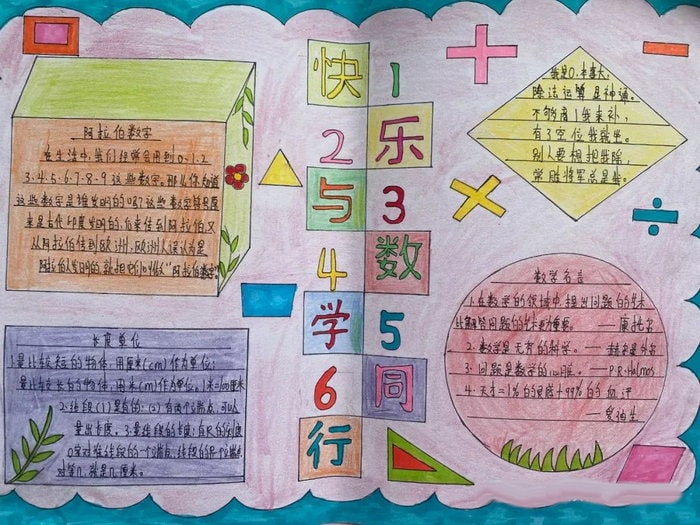 阿拉伯数字
在生活中,我们经常会用到0.1.2
3.4.5.6.7.8.9这些数字。那么你知道
这些数字是谁发明的吗?这些数字其实最
早是古代印度发明的,后来传到阿拉伯,又
从阿拉伯传到欧洲,欧洲人误认为是
阿拉伯人发明的,就把它们叫做"阿拉伯数字"
长度单位
1.量比较短的物体,用厘米(cm)作为单位;
量比较长的物体,用米(m)作为单位。1米=100厘米
2.线段(1)是直的;(2)有两个端点,可以
量出长度。3.量线段的长度:有尺的刻度
0字对准线段的一个端点,线段的另一个端点
对着几,就是几厘米。
快
1
2
乐
与
3
4
数
学
5
6
同
行
我是0,本事大,
除法运算是神通。
不够商1我来补,
有了空位我就坐。
别人要想把我除,
常胜将军总是我。
数学名言
1.在数学的领域中,提出问题的艺术
比解答问题的艺术更为重要。——康托尔
2.数学是无穷的科学。——赫尔曼外尔
3.问题是数学的心脏。——P.R.Halmos
4.天才=1%的灵感+99%的血汗
——爱迪生